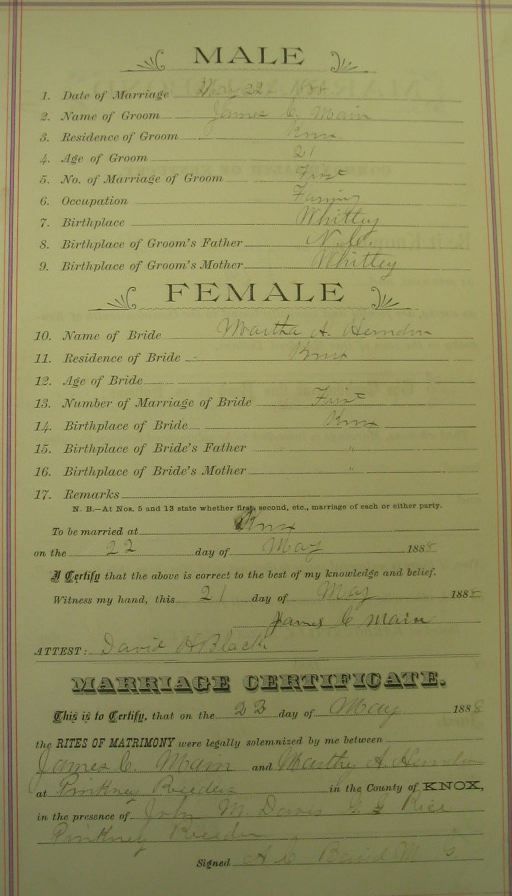 MALE
1. Date of Marriage May 22 1888
2. Name of Groom James C. Main
3. Residence of Groom Knox
4. Age of Groom 21
5. No. of Marriage of Groom First
6. Occupation Farming
7. Birthplace Whitley
8. Birthplace of Groom's Father
9. Birthplace of Groom's Mother Whitley
FEMALE
10. Name of Bride Martha A. Herndon
11. Residence of Bride Knox
12. Age of Bride
13. Number of Marriage of Bride First
14. Birthplace of Bride Knox
15. Birthplace of Bride's Father "
16. Birthplace of Bride's Mother "
17. Remarks
N. B.—At Nos. 5 and 13 state whether first, second, etc., marriage of each or either party.
To be married at Knox
on the 22 day of May 1888
I Certify that the above is correct to the best of my knowledge and belief.
Witness my hand, this 21 day of May 1888
James C Main
ATTEST: David H Black
MARRIAGE CERTIFICATE.
This is to Certify, that on the 22 day of May 1888
the RITES OF MATRIMONY were legally solemnized by me between
James C. Main and Martha A. Herndon
at Pinkney Reeders in the County of KNOX,
in the presence of John M. Davis Rice
Pinkney Reeder
Signed A C Baird M